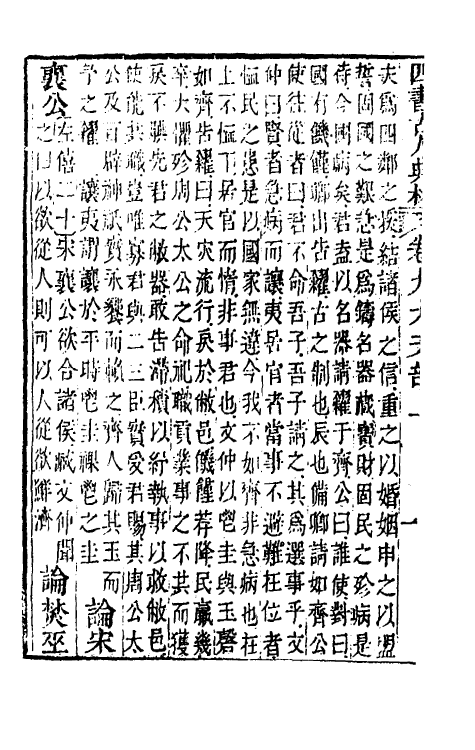 四書古人典林 卷九 大夫部一 一
夫爲四鄰之援結諸侯之信重之以婚姻申之以盟
誓固國之艱急是爲鑄名器藏寶財固民之殄病是
待今國病矣君盍以名器請糴于齊公曰誰使對曰
國有饑饉卿出告糴古之制也辰也備卿請如齊公
使往從者曰君不命吾子吾子請之其爲選事乎文
仲曰賢者急病而讓夷居官者當事不避難在位者
恤民之患是以國家無違今我不如齊非急病也在
上不恤下居官而惰非事君也文仲以鬯圭與玉磬
如齊告糴曰天災流行戾於敝邑饑饉荐降民羸幾
卒大懼殄周公太公之命祀職貢業事之不共而獲
戾不腆先君之敝器敢告滯積以紓執事以救敝邑
使能共職豈唯寡君與二三臣實受君賜其周公太
公及百辟神祇實永饗而賴之齊人歸其玉而
予之糴 讓夷謂讓於平時鬯圭祼鬯之圭 論宋
襄公 左僖二十宋襄公欲合諸侯臧文仲聞之曰以欲從人則可以人從欲鮮濟 論焚巫